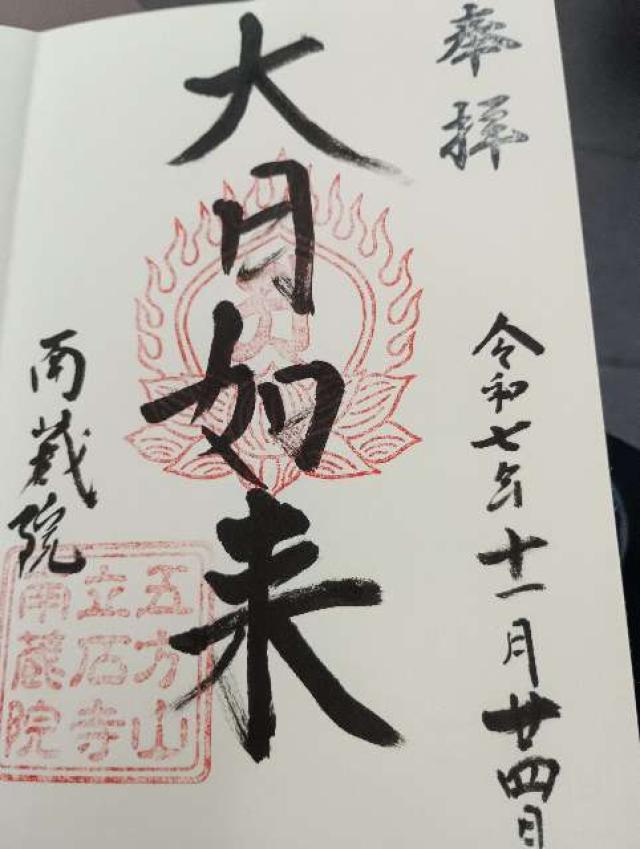 奉拝
令和七年十一月廿四日
大日如来
南蔵院
五方山
立石寺
南蔵院